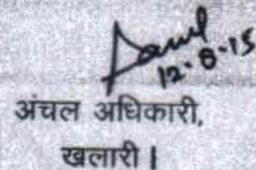 12-8-15
अंचल अधिकारी,
खलारी |